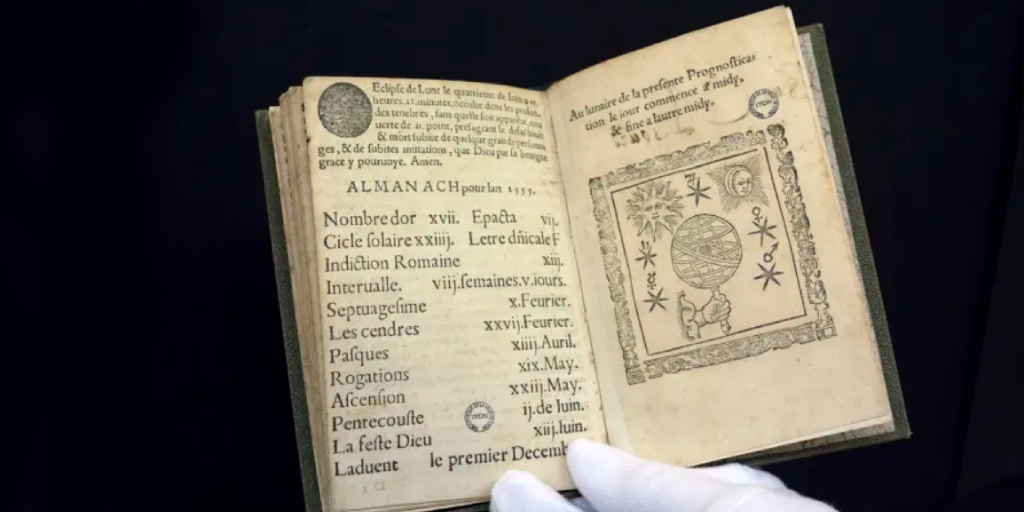 Eclipse de Lune le quatrieme de Iuin a
heures. 25. minutes, occulte dens les profun-
des tenebres, sans quelle soit apparẽte, cou-
uerte de 21. point, presageant le
& mort subite de quelque grands personna
ges, & de subites mutations, que Dieu par sa benigne
grace y pouruoye. Amen.
ALMANACH pour lan 1555.
Nombre dor xvii. Epacta vij.
Cicle solaire xxiiij. Letre dñicale F
Indiction Romaine xiij.
Interualle. viij.semaines.v.iours.
Septuagesime x.Feurier.
Les cendres xxvij.Feurier.
Pasques xiiij.Auril.
Rogations xix.May.
Ascension xxiij.May.
Pentecouste ij.de Iuin.
La feste Dieu xiij.Iuin.
Laduent le premier Decemb
Au lunaire de la presente Prognostica-
tion le iour commence a midy,
& fine a lautre midy.
LYON
LYON